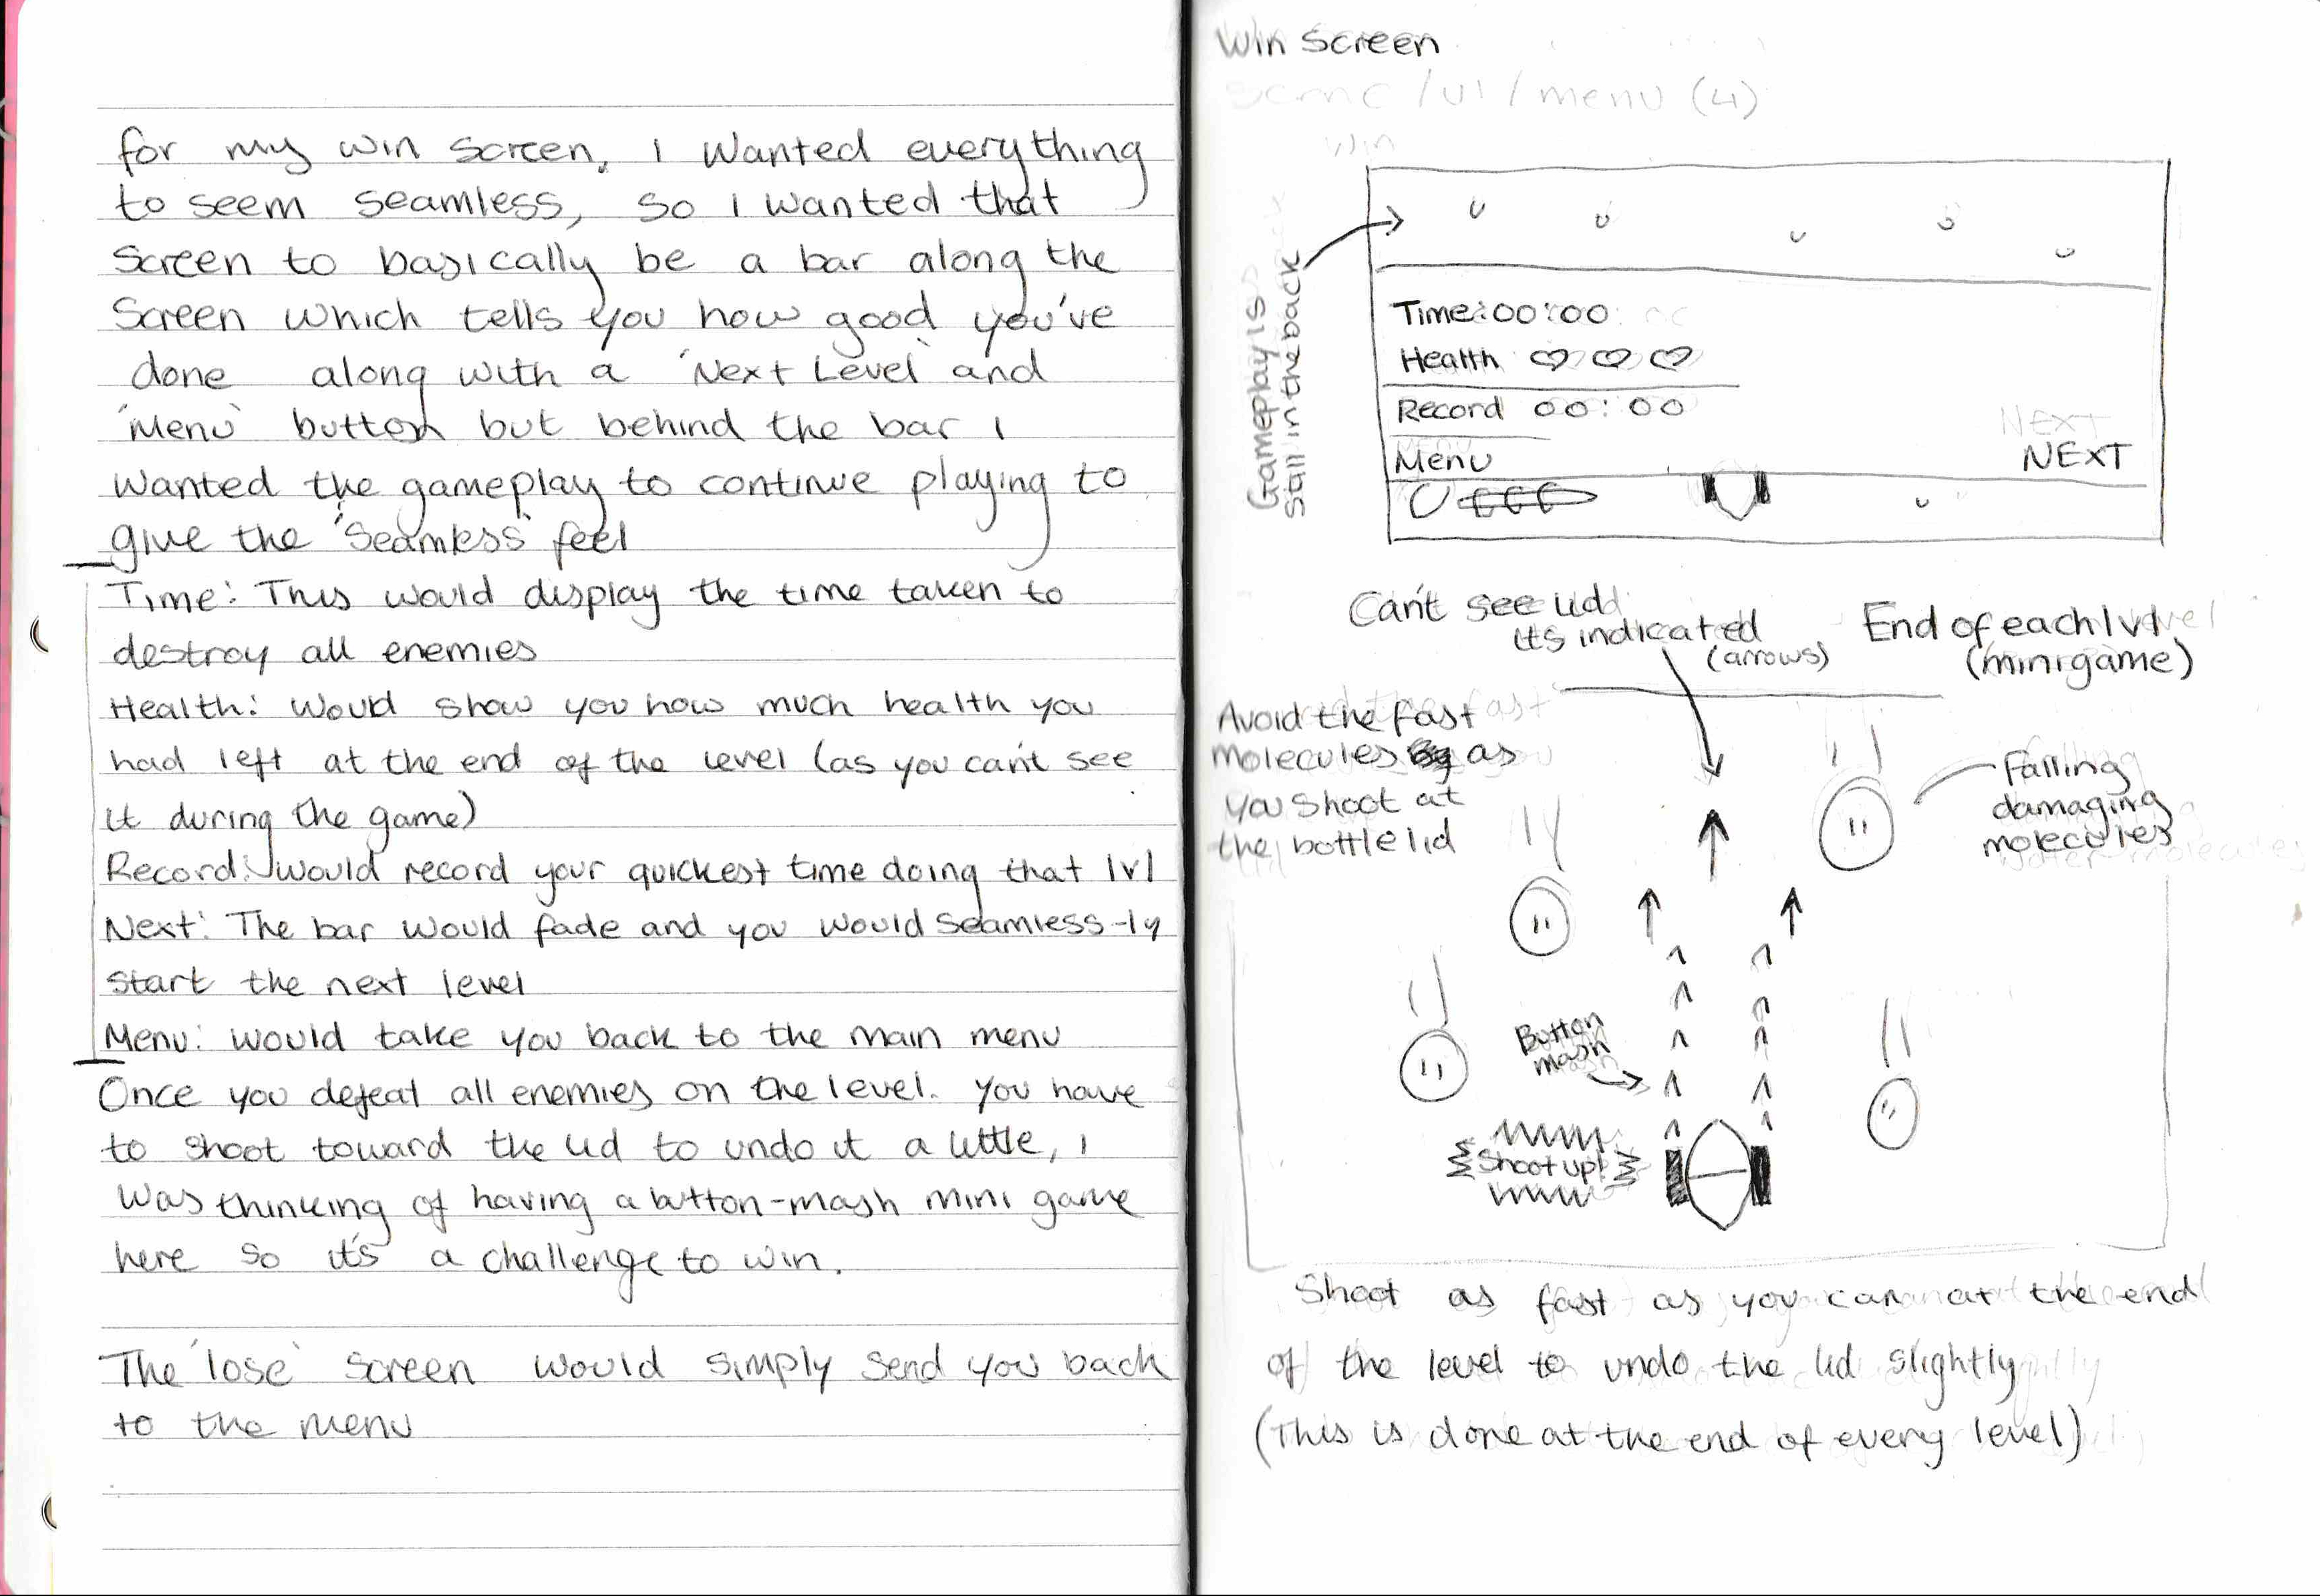 for my win screen, I wanted everything
to seem seamless, so I wanted that
screen to basically be a bar along the
screen which tells you how good you've
done along with a 'Next Level' and
'Menu' button but behind the bar I
wanted the gameplay to continue playing to
give the 'seamless' feel
Time: This would display the time taken to
destroy all enemies
Health: Would show you how much health you
had left at the end of the level (as you can't see
it during the game)
Record: would record your quickest time doing that lvl
Next: The bar would fade and you would seamless-ly
start the next level
Menu: would take you back to the main menu
Once you defeat all enemies on the level. You have
to shoot toward the lid to undo it a little, I
was thinking of having a button-mash mini game
here so it's a challenge to win.
The 'lose' screen would simply send you back
to the menu
Win Screen
/UI/menu (4)
Win
Gameplay is
still in the back
Time:00:00
Health
Record 00:00
NEXT
Menu
NEXT
Can't see lid
its indicated
(arrows)
End of each lvl
(minigame)
Avoid the fast
molecules as
you shoot at
the bottle lid
falling
damaging
molecules
Button
mash
Shoot up!
Shoot as fast as you can at the end
of the level to undo the lid slightly
(This is done at the end of every level)